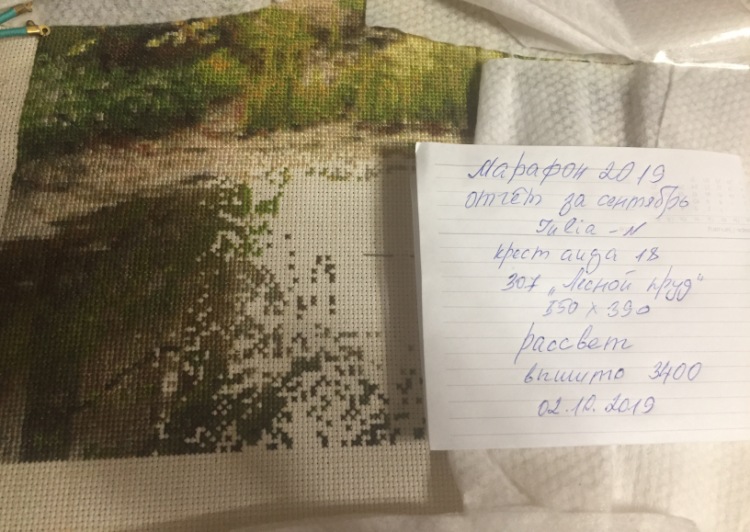 Марафон 2019
отчёт за сентябрь
Julia-N
крест аида 18
307 „Лесной пруд"
550 х 390
рассвет
вышито 3400
02.10.2019